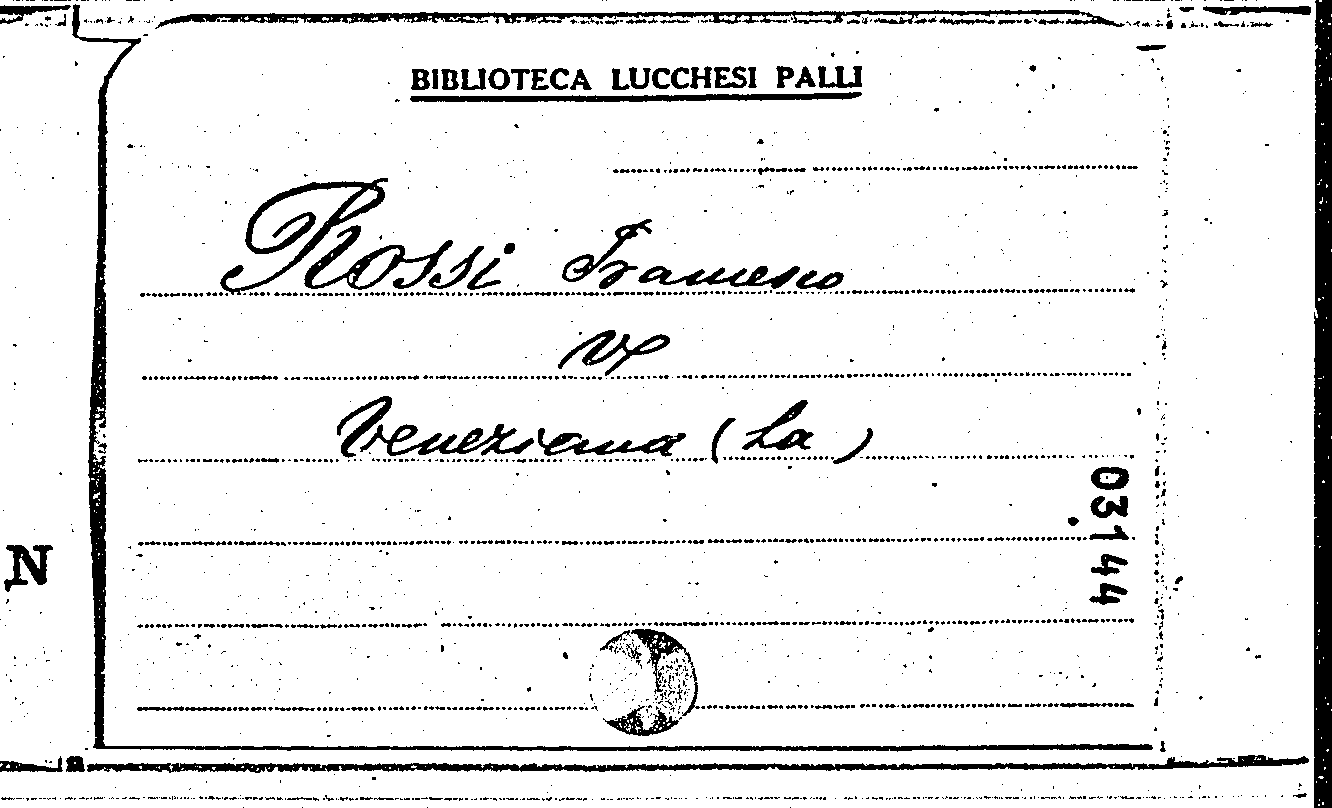 BIBLIOTECA LUCCHESI PALLI
Rossi Francesco
Veneziana (La)
03144
N